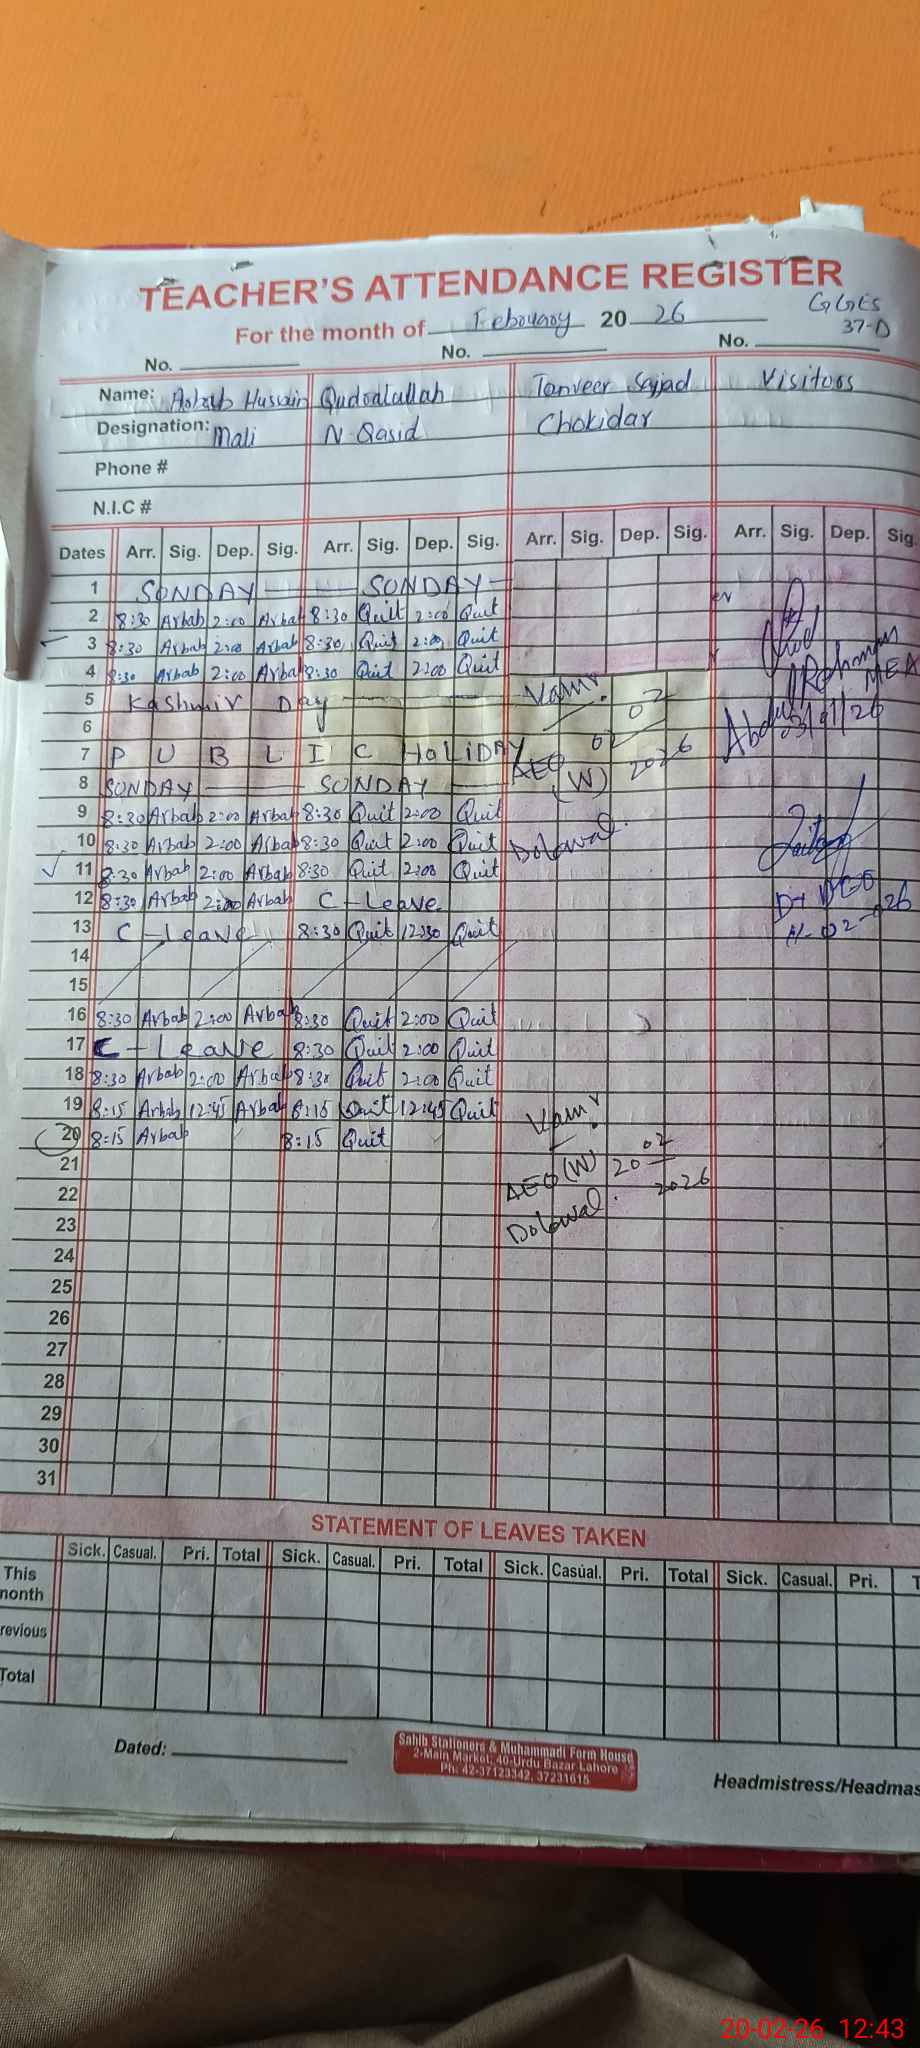 TEACHER'S ATTENDANCE REGISTER
For the month of February 20 26
GGES
37-D
No. No. No.
Name: Arbab Hussain Qudratullah Tanveer Sajjad Visitors
Designation: Mali N-Qasid Chokidar
Phone #
N.I.C #
Dates Arr. Sig. Dep. Sig. Arr. Sig. Dep. Sig. Arr. Sig. Dep. Sig. Arr. Sig. Dep. Sig.
1 SONDAY SONDAY
2 8:30 Arbab 2:00 Arbab 8:30 Quit 2:00 Quit
3 8:30 Arbab 2:00 Arbab 8:30 Quit 2:00 Quit
4 8:30 Arbab 2:00 Arbab 8:30 Quit 2:00 Quit
5 Kashmir Day
6
7 PUBLIC HOLIDAY
8 SONDAY SONDAY
9 8:30 Arbab 2:00 Arbab 8:30 Quit 2:00 Quit
10 8:30 Arbab 2:00 Arbab 8:30 Quit 2:00 Quit
11 8:30 Arbab 2:00 Arbab 8:30 Quit 2:00 Quit
12 8:30 Arbab 2:00 Arbab C-Leave
13 C-Leave 8:30 Quit 12:30 Quit
14
15
16 8:30 Arbab 2:00 Arbab 8:30 Quit 2:00 Quit
17 C-Leave 8:30 Quit 2:00 Quit
18 8:30 Arbab 2:00 Arbab 8:30 Quit 2:00 Quit
19 8:15 Arbab 12:45 Arbab 8:15 Quit 12:45 Quit
20 8:15 Arbab 8:15 Quit
21
22
23
24
25
26
27
28
29
30
31
02
AEO 02
(W) 2026
Dolowal.
MEA
DGO
AEO (W) 20 02
2026
Dolowal.
STATEMENT OF LEAVES TAKEN
Sick. Casual. Pri. Total Sick. Casual. Pri. Total Sick. Casual. Pri. Total Sick. Casual. Pri.
This
month
revious
Total
Dated:
Sahib Stationers & Mohammadi Form House
2-Main Market, 40-Urdu Bazar Lahore
Ph: 42-37123342, 37231615
Headmistress/Headmas
20-02-26 12:43